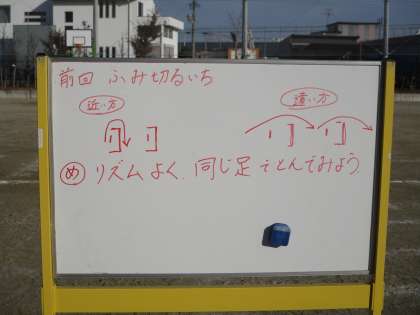 前回 ふみ切るいち
近い方 遠い方
め リズムよく、同じ足でとんでみよう。